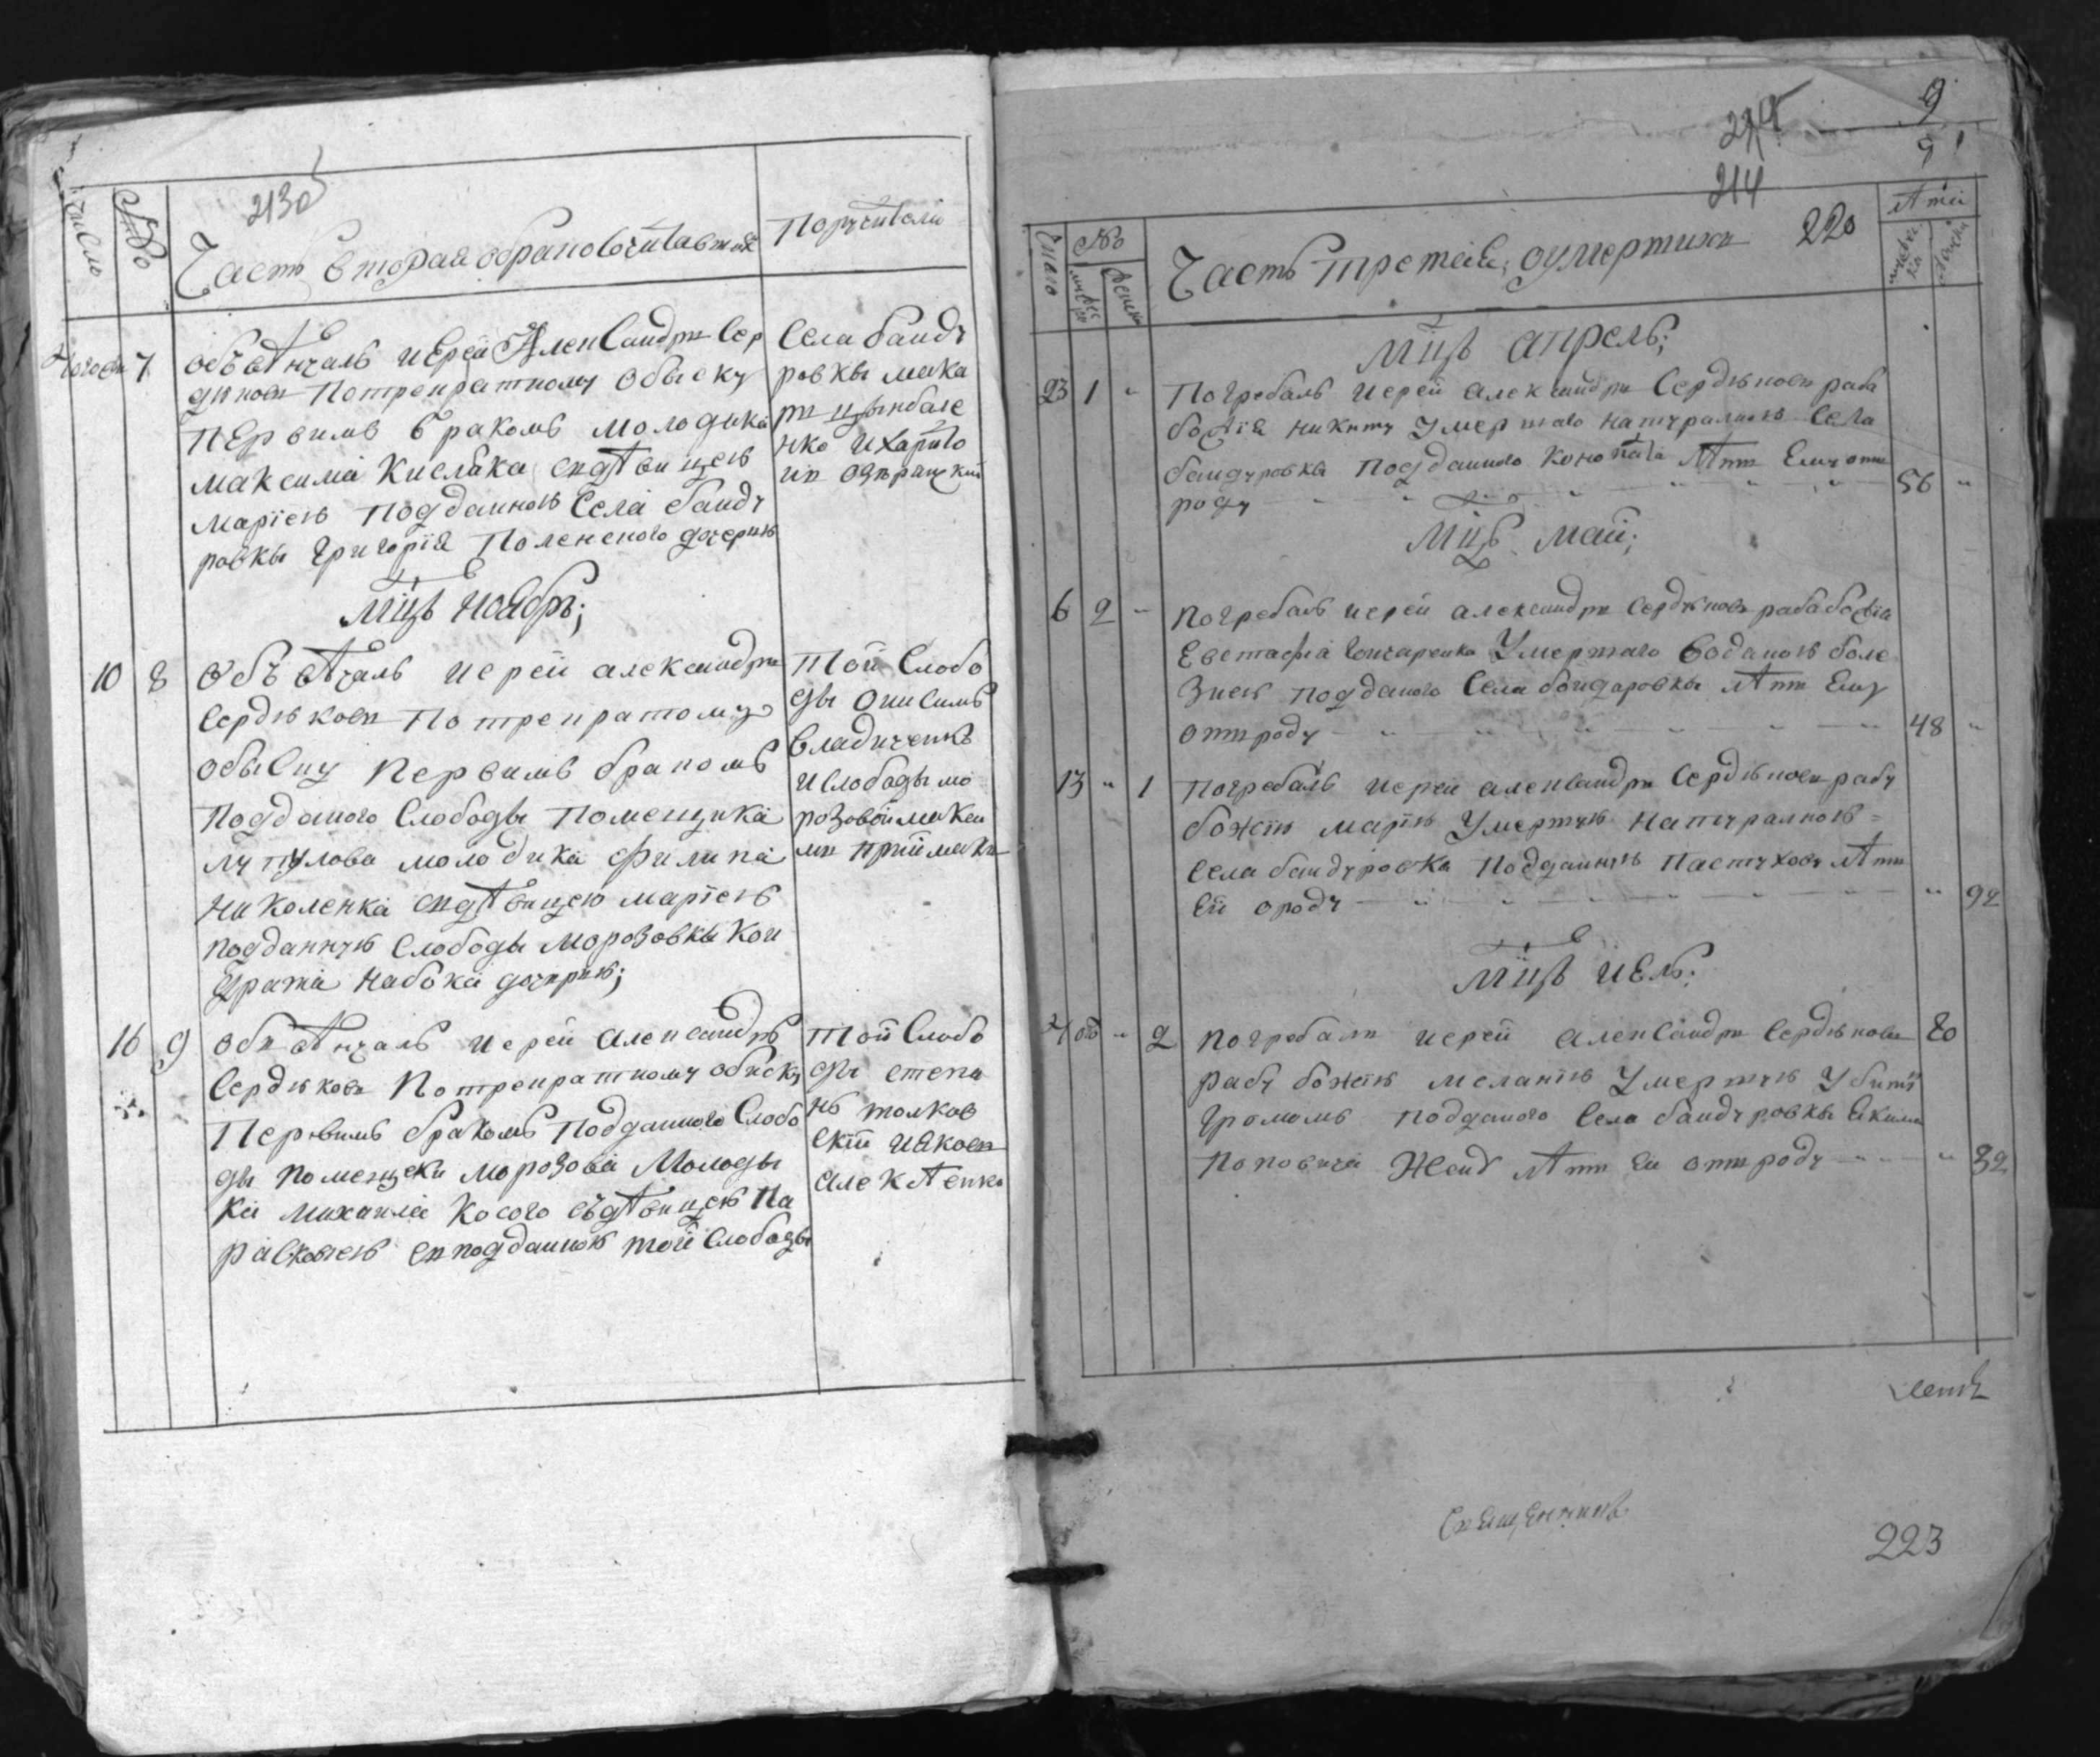 число
№
213
Часть вторая о бракосочитавшихъ
Поручители
Тогожъ 7
объвѣнчалъ иерей Александръ Сер
дюковъ по трекратному обыску
первимъ бракомъ молодика
максима Кислака съ дѣвицею
мариею подданною села банду
ровки григорія Поленского дочерию
села банду
ровки мака
ръ цынбале
нко и харито
нъ одърински
мцъ ноябрь;
10 8
объвѣчалъ иерей александръ
сердюковъ по трекратому
обыску первимъ бракомъ
подданого слободы помещика
лутулова молодика филипа
николенка съ дѣвицею мариею
подданную слободы морозовки кон
драта набока дочирию;
той слобо
ды онисимъ
владиченко
и слободы мо
розовой макси
мъ приймакъ
16 9
объвѣнчалъ иерей александръ
сердюковъ по трекратному обиску
первимъ бракомъ подданного слобо
ды помещеки морозова молоды
ка михаила косого съ дѣвицею па
раскевиею съ подданною той слободы
той слобо
ды степа
нъ толков
ский и яковъ
алексѣенко
214
9
9
214
число
№
мужес
женск
Часть третия, о умертихъ
220
Лѣта
мужеск
женски
мцъ апрель;
23 1 "
Погребалъ иерей александръ сердюковъ раба
божія никиту умершаго натуралною села
бандуровки подданного коноплѣ лѣтъ ему отъ
роду 56 "
мцъ май;
6 2 "
погребалъ иерей александръ сердюковъ раба божія
евстафиа гончаренка умершаго водяною боле
знею подданого села бондаровки лѣтъ ему
отъ роду 48 "
13 " 1
погребалъ иерей александръ сердюковъ рабу
божію марию умершую натуралною
села бандуровки подданную пастухову лѣтъ
ей о роду " 92
мцъ июль;
" 2
погребалъ иерей александръ сердюковъ 80
рабу божию меланию умершую убита
громомъ подданого села бандуровки якима
поповича жена лѣтъ ей отъ роду " 32
Священникъ
223